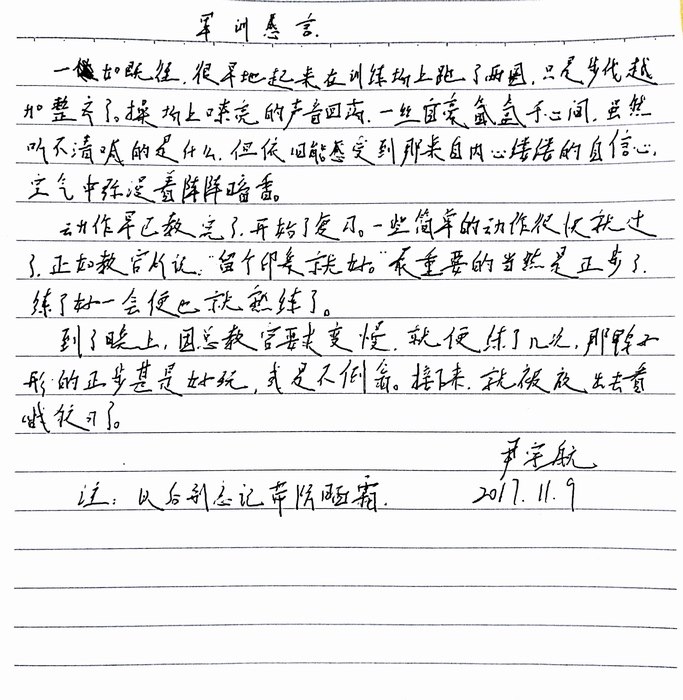 军训感言
一如既往，很早地起来在训练场上跑了两圈，只是步伐越
加整齐了。操场上嘹亮的声音回荡，一丝自豪氤氲于心间，虽然
听不清喊的是什么，但依旧能感受到那来自内心缕缕的自信心，
空气中弥漫着阵阵暗香。
动作早已教完了，开始了复习。一些简单的动作很快就过
了，正如教官所说："留个印象就好。"最重要的当然是正步了，
练了好一会便也就熟练了。
到了晚上，因总教官要求变慢，就便练了几次，那
形的正步甚是好玩，或是不倒翁。接下来，就被放出去看
了。
尹宇航
注：以后别忘记带防晒霜。
2017.11.9